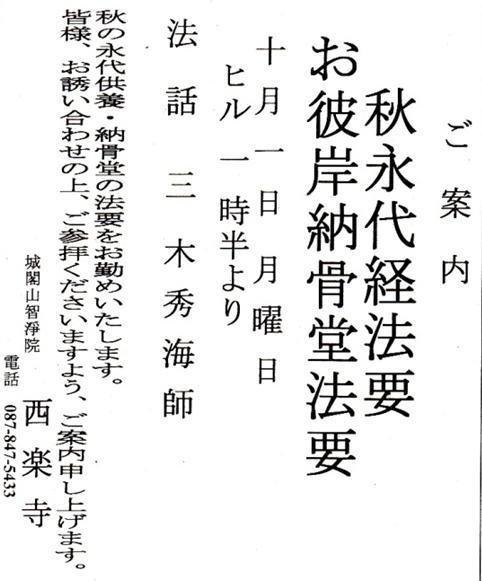 ご案内
秋永代経法要
お彼岸納骨堂法要
十月一日 月曜日
ヒル 一時半より
法話 三木秀海師
秋の永代供養・納骨堂の法要をお勤めいたします。
皆様、お誘い合わせの上、ご参拝くださいますよう、ご案内申し上げます。
城閣山智淨院
西楽寺
電話 087-847-5433